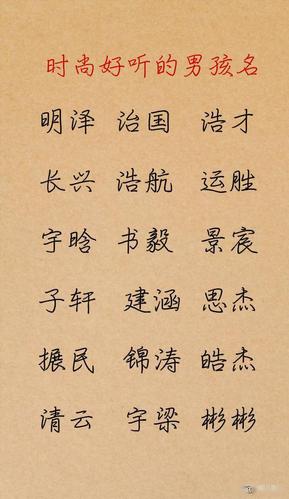 时尚好听的男孩名
明泽 治国 浩才
长兴 浩航 运胜
宇晗 书毅 景宸
子轩 建涵 思杰
振民 锦涛 皓杰
清云 宇梁 彬彬